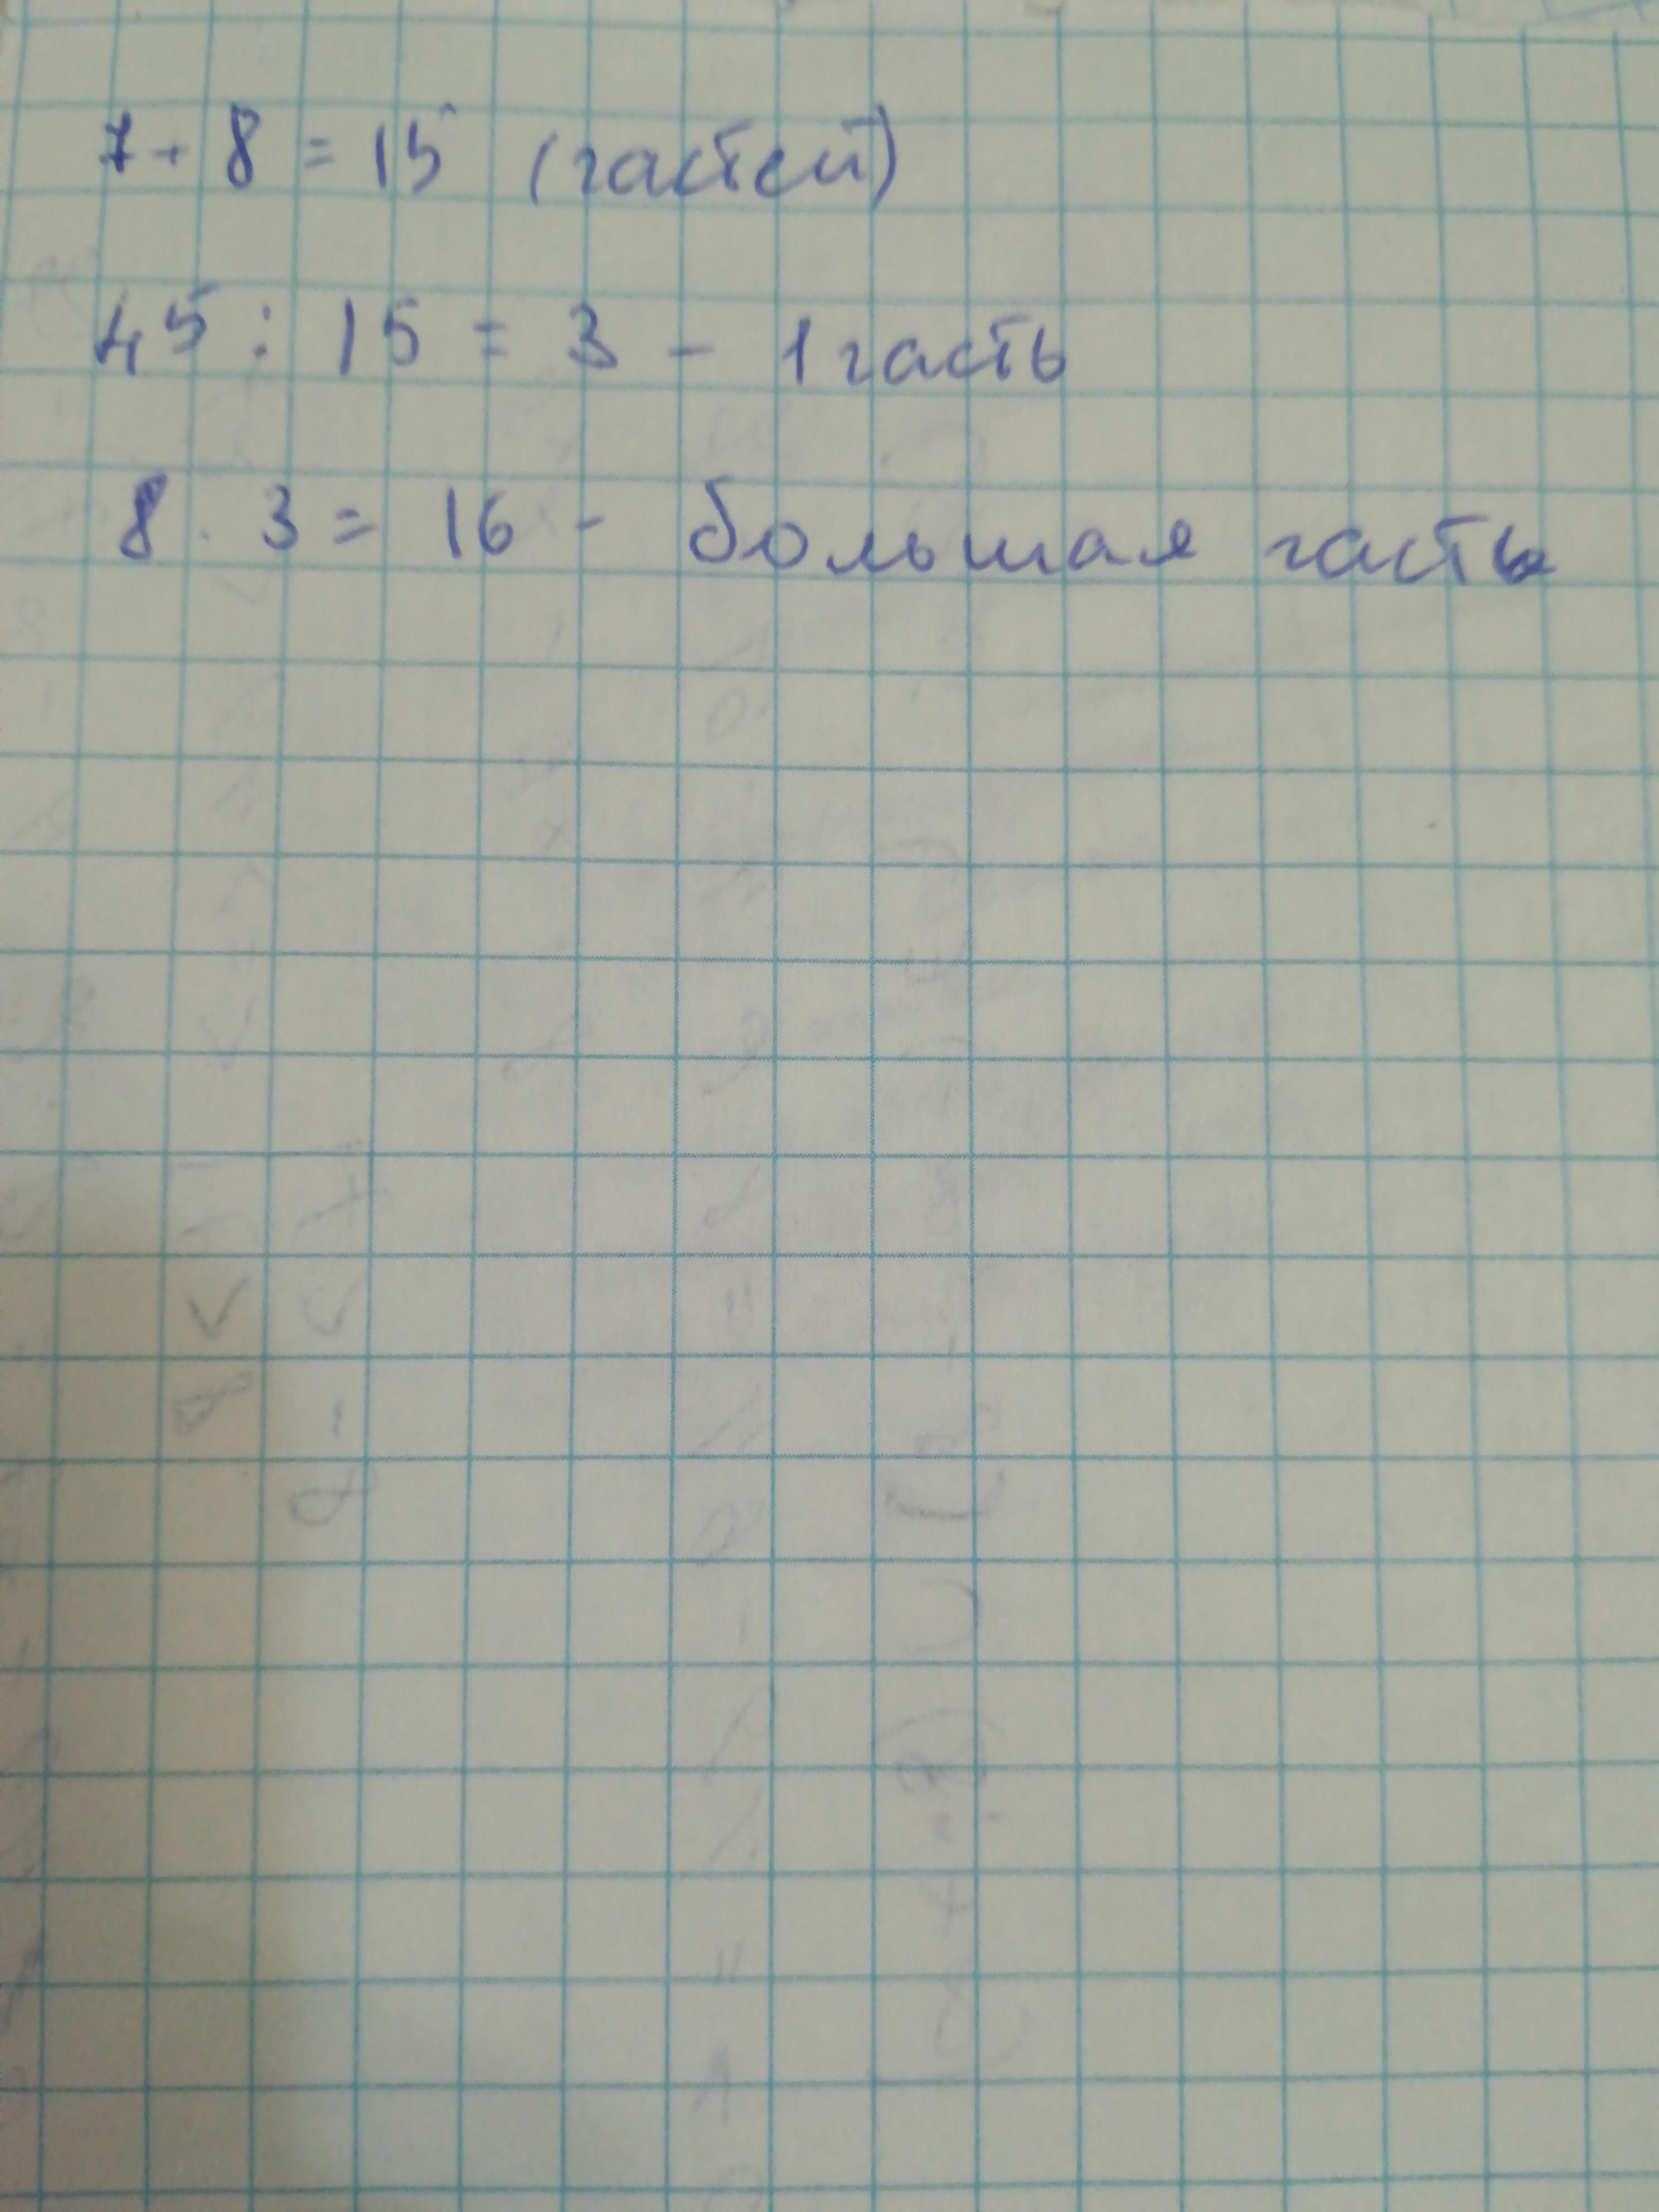 7 + 8 = 15 (частей)
45 : 15 = 3 - 1 часть
8 · 3 = 16 - большая часть